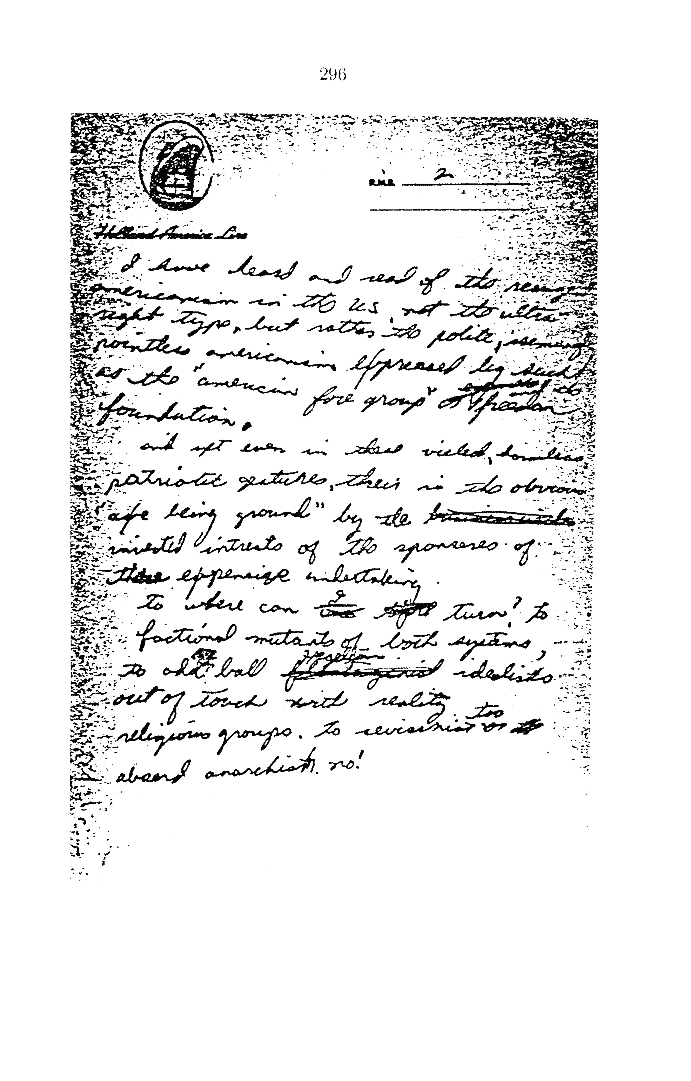 296
R.M.S. 2
Holland-America Line
I have heard and read of the resurgent
americanism in the U.S. not the ultra-
right type, but rather the polite, seemingly
pointless americanism expressed by such
as the "american fore group" and the freedom
foundation.
and yet even in these vieled, harmless
patriotic gestures, their is the obvious
"axe being ground" by the
invested intrests of the sponseres of
there expensive undertaking.
to where can I turn? to
factional mutants of both systems,
to odd-ball Hegelian idealists
out of touch with reality
religious groups. to revisinist or too
absurd anarchist. no!